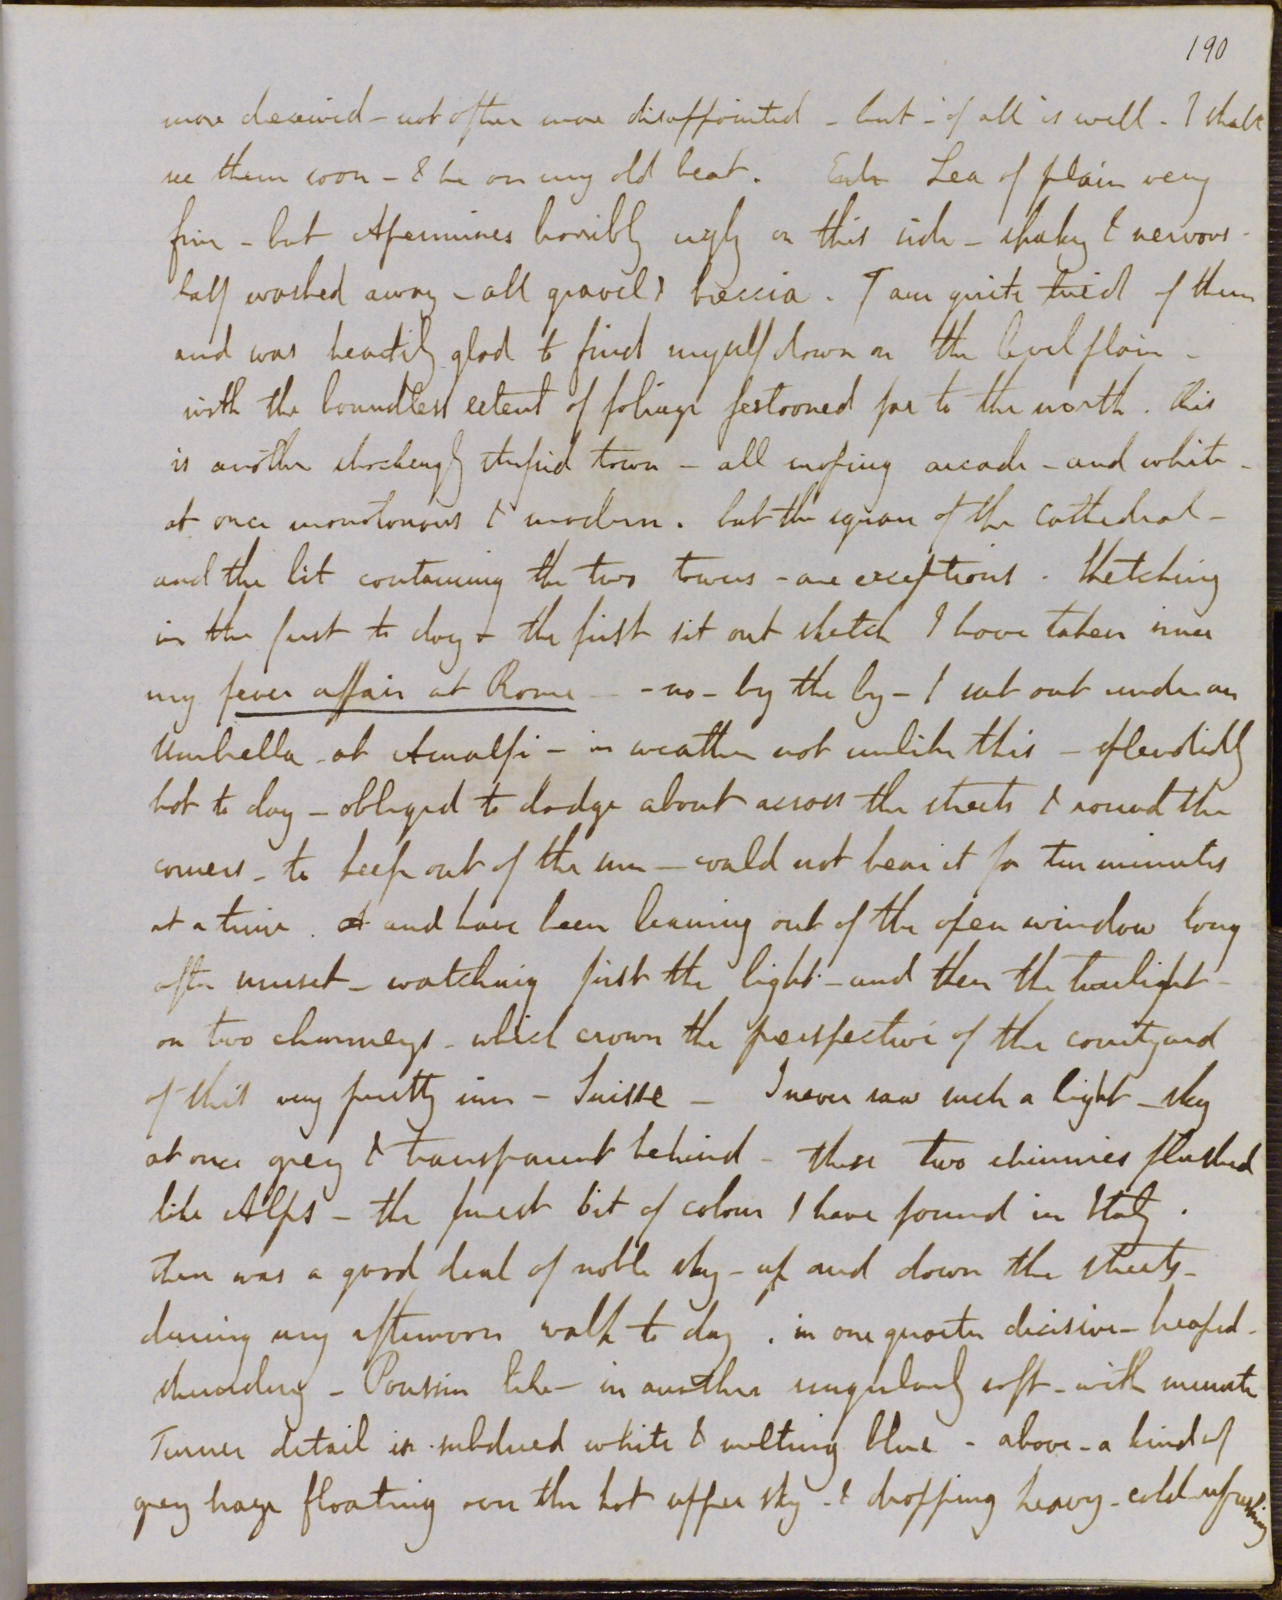 190
more deceived - not often more disappointed - but - if all is well - I shall
see them soon - & be on my old beat. Sea of plain very
fine - but Apennines horribly ugly on this side - shaky & nervous -
half washed away - all gravel & breccia. I am quite tired of them
and was heartily glad to find myself down on the level plain -
with the boundless extent of foliage festooned far to the north. This
is another shockingly stupid town - all moping arcade - and white -
at once monotonous & modern. but the square of the cathedral -
and the bit containing the two towers - are exceptions. Sketching
in the first to day - the first sit out sketch I have taken since
my fever affair at Rome - - no - by the by - I sat out under an
Umbrella - at Amalfi - in weather not unlike this - splendidly
hot to day - obliged to dodge about across the streets & round the
corners - to keep out of the sun - could not bear it for ten minutes
at a time. and have been leaning out of the open window long
after sunset - watching first the light - and then the twilight -
on two chimneys - which crown the perspective of the courtyard
of this very pretty inn - Suisse - I never saw such a light - sky
at once grey & transparent behind - these two chimnies flushed
like Alps - the finest bit of colour I have found in Italy.
There was a good deal of noble sky - up and down the streets -
during my afternoon walk to day. in one quarter decisive - heaped -
thundery - Poussin like - in another singularly soft - with minute
Turner detail in subdued white & melting blue - above - a kind of
grey haze floating over the hot upper sky - & dropping heavy - cold refreshing